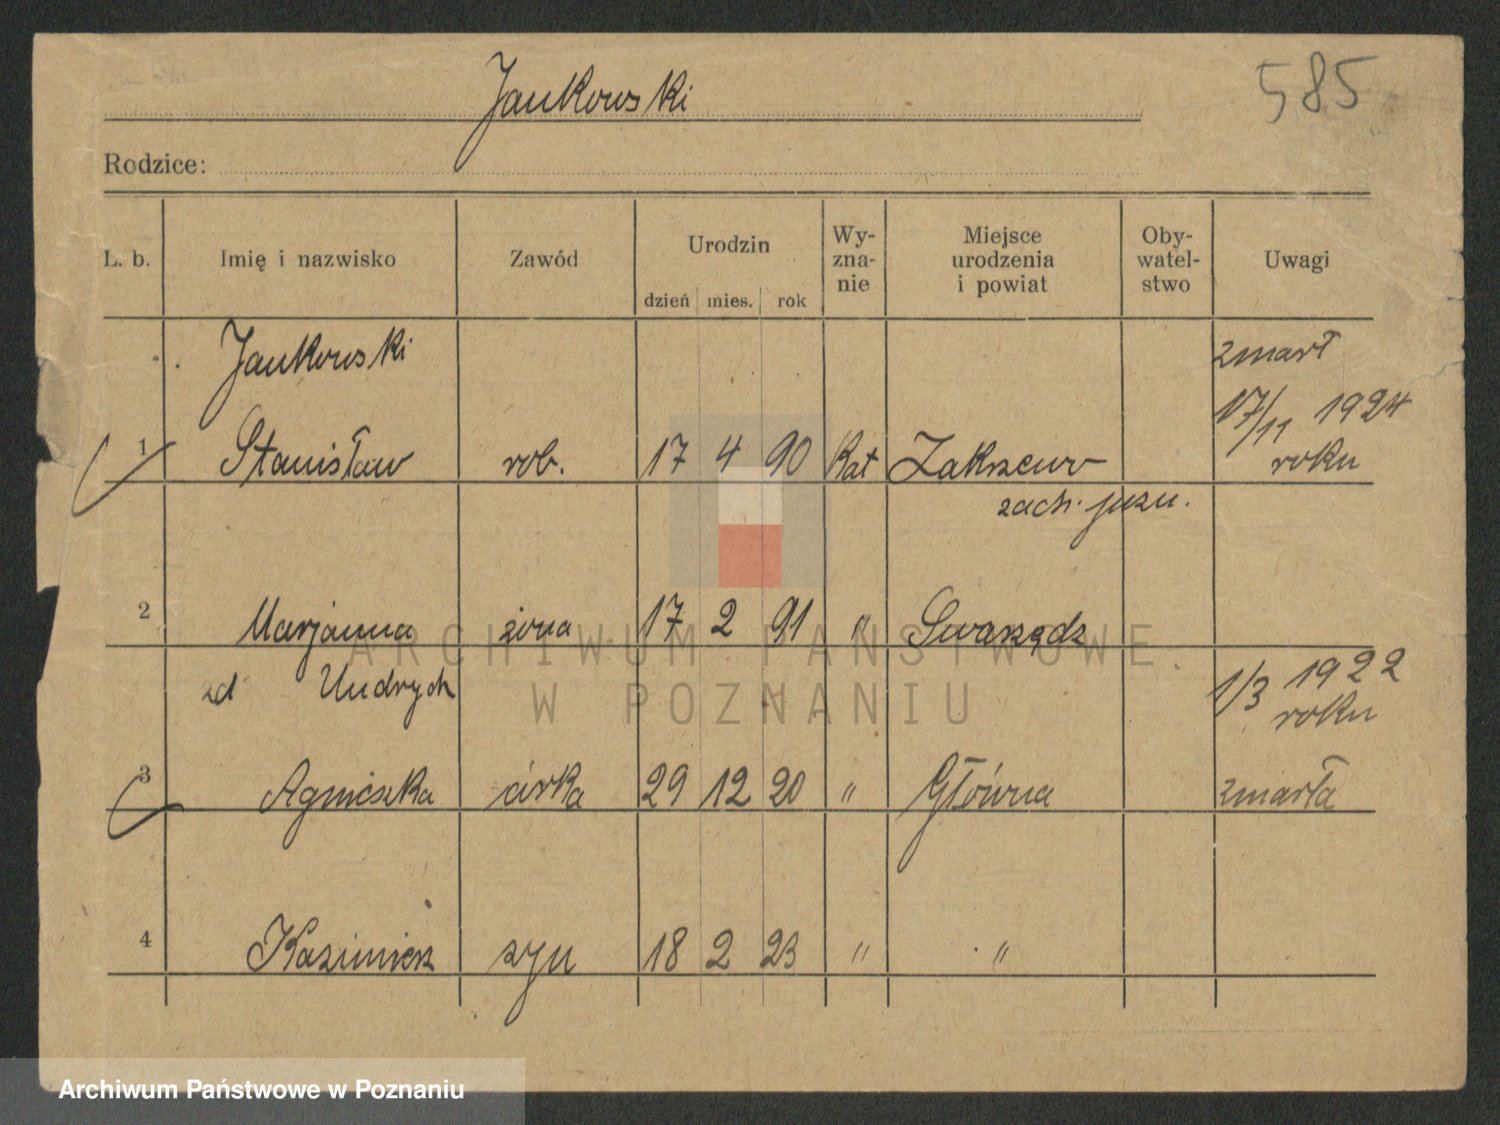 Jankowski
585
Rodzice:
L. b. Imię i nazwisko Zawód Urodzin Wy- Miejsce Oby- Uwagi
zna- urodzenia watel-
nie i powiat stwo
dzień mies. rok
Jankowski zmarł
17/11 1924
1 Stanisław rob. 17 4 90 Kat Zakrzewo roku
zach.
2 Marjanna żona 17 2 91 " Swarzędz
ARCHIWUM PAŃSTWOWE
zd Undrych 1/3 1922
W POZNANIU
roku
3 Agnieszka córka 29 12 20 " Główna zmarła
4 Kazimierz syn 18 2 23 " "
Archiwum Państwowe w Poznaniu